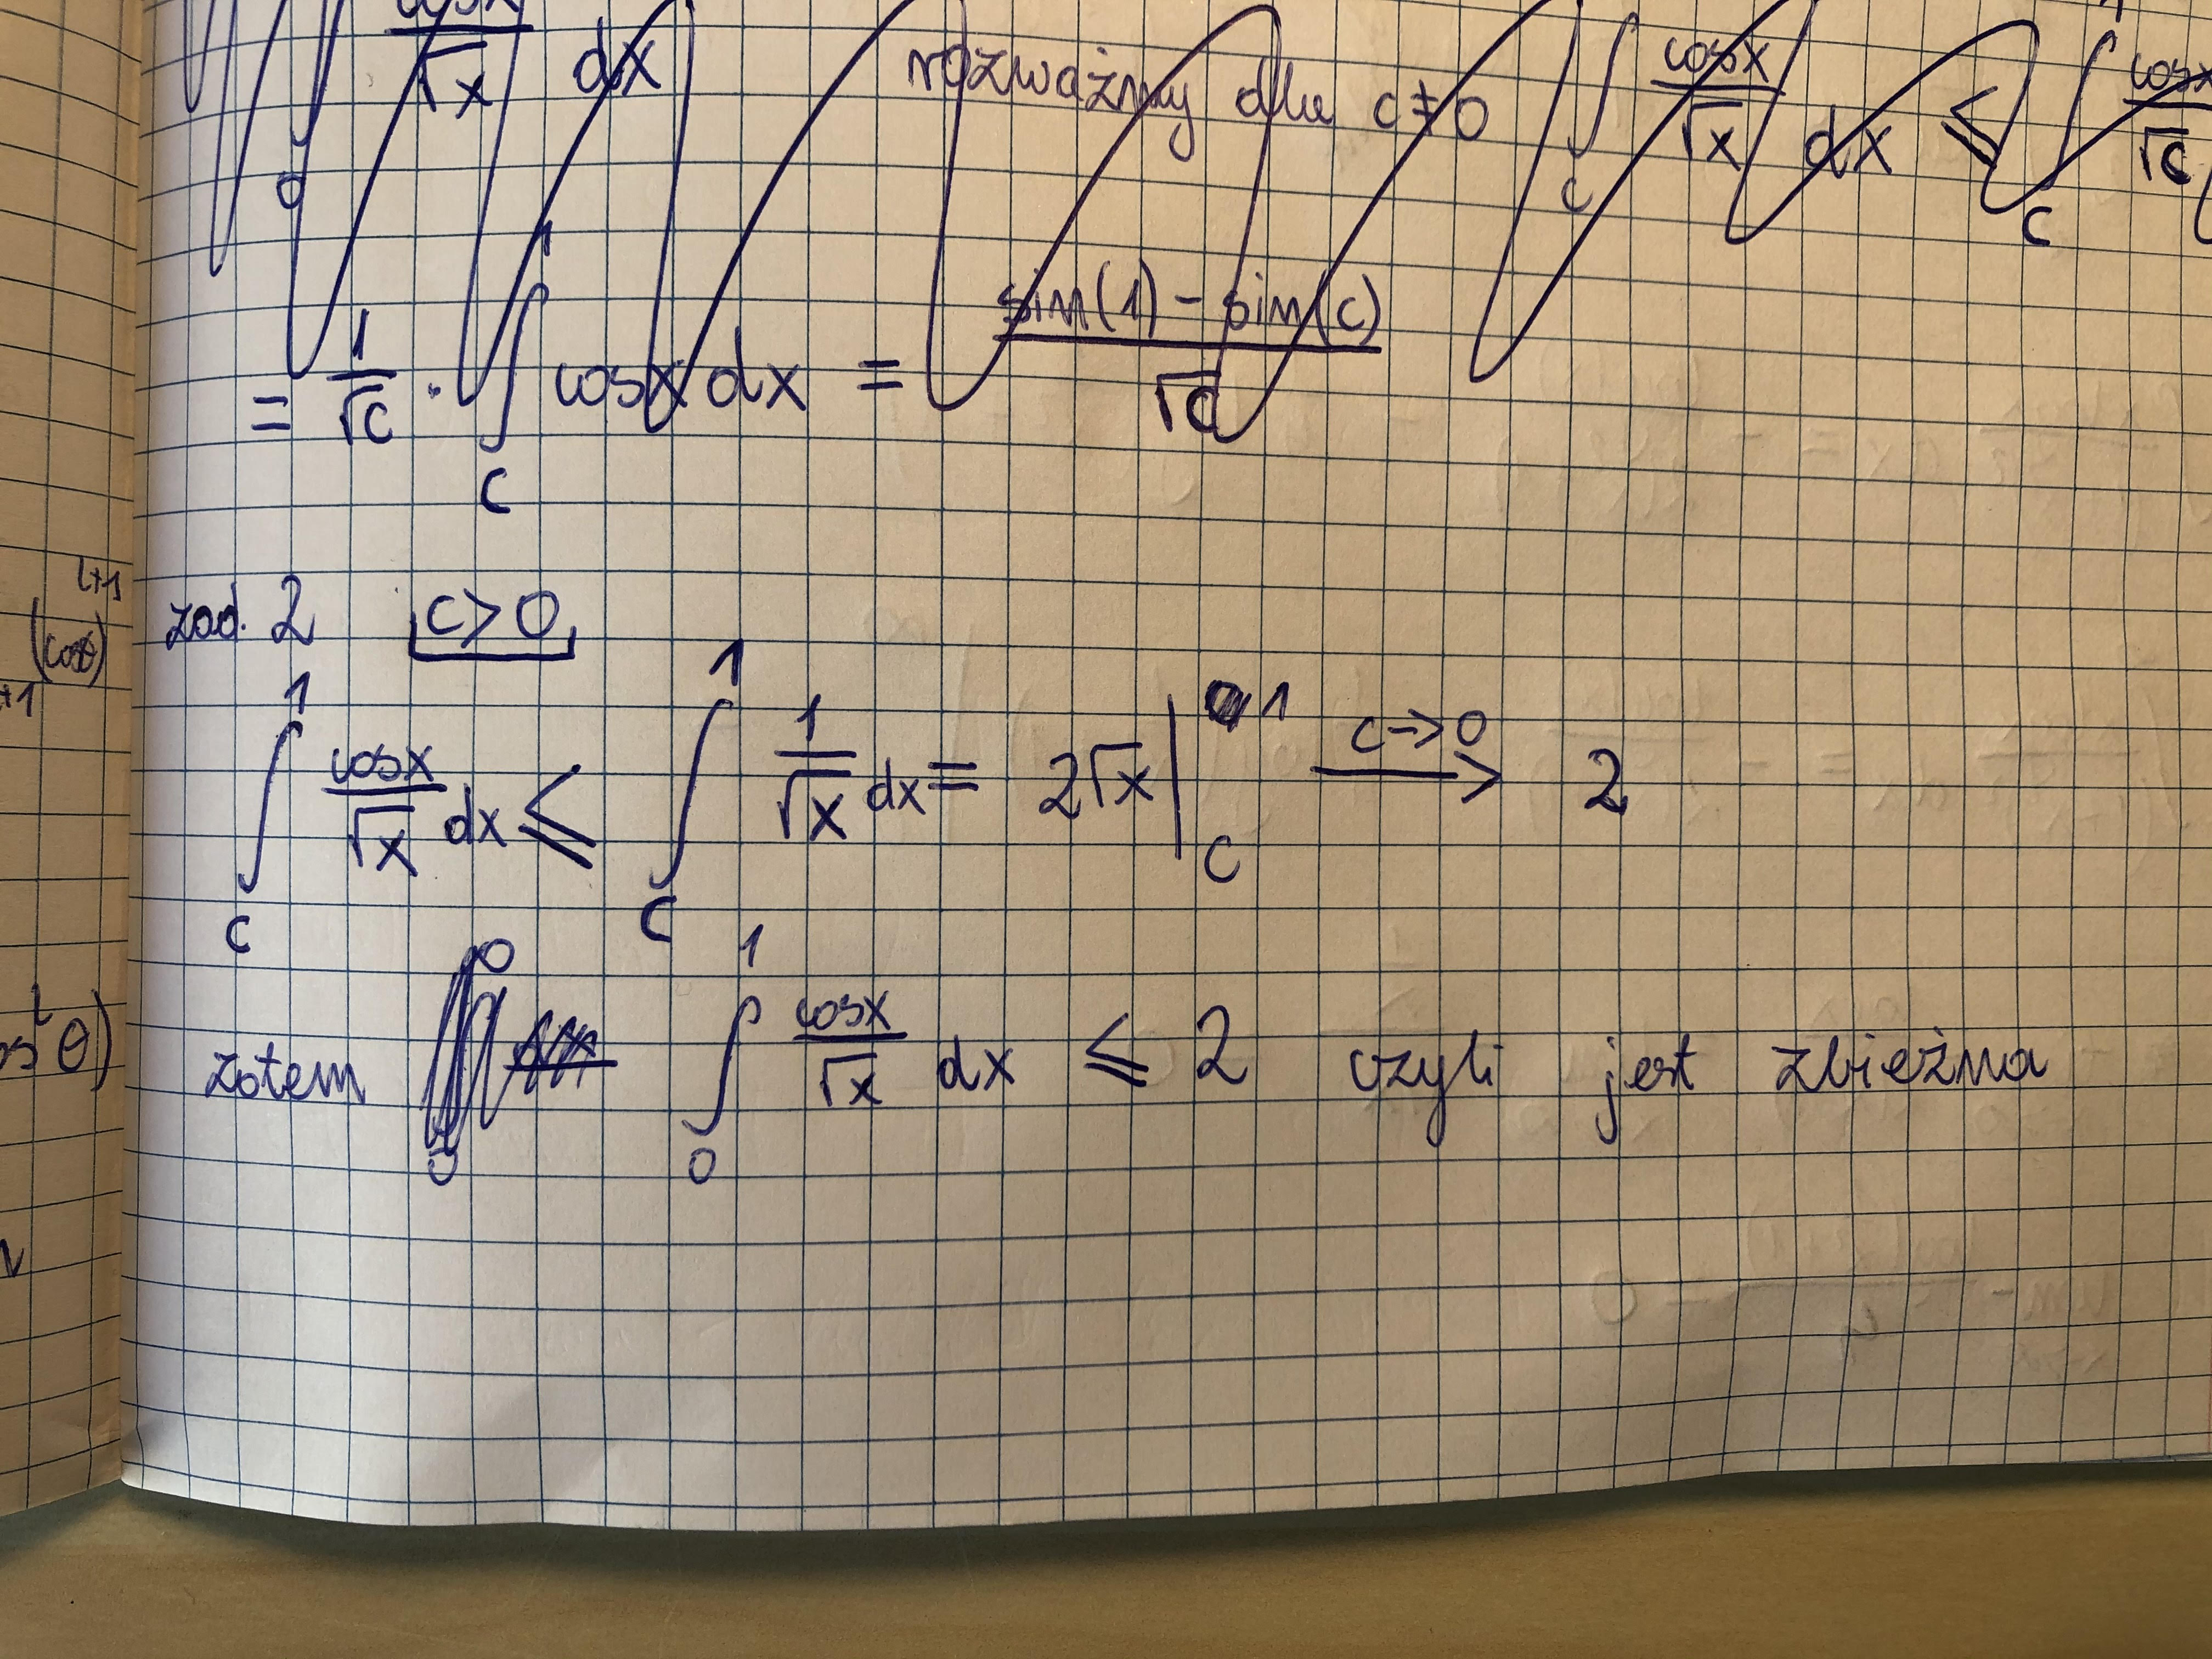 ∫_0 cosx/√x dx rozważmy dla c≠0 ∫_c cosx/√x dx ≤ ∫_c^1 cosx/√c
= 1/√c · ∫_c^1 cosx dx = (sin(1) - sin(c))/√c
zad. 2 c>0
∫_c^1 cosx/√x dx ≤ ∫_c^1 1/√x dx = 2√x |_c^1 →(c→0) 2
zatem ∫_0^1 cosx/√x dx ≤ 2 czyli jest zbieżna
l+1
(cosθ)
+1
θ)